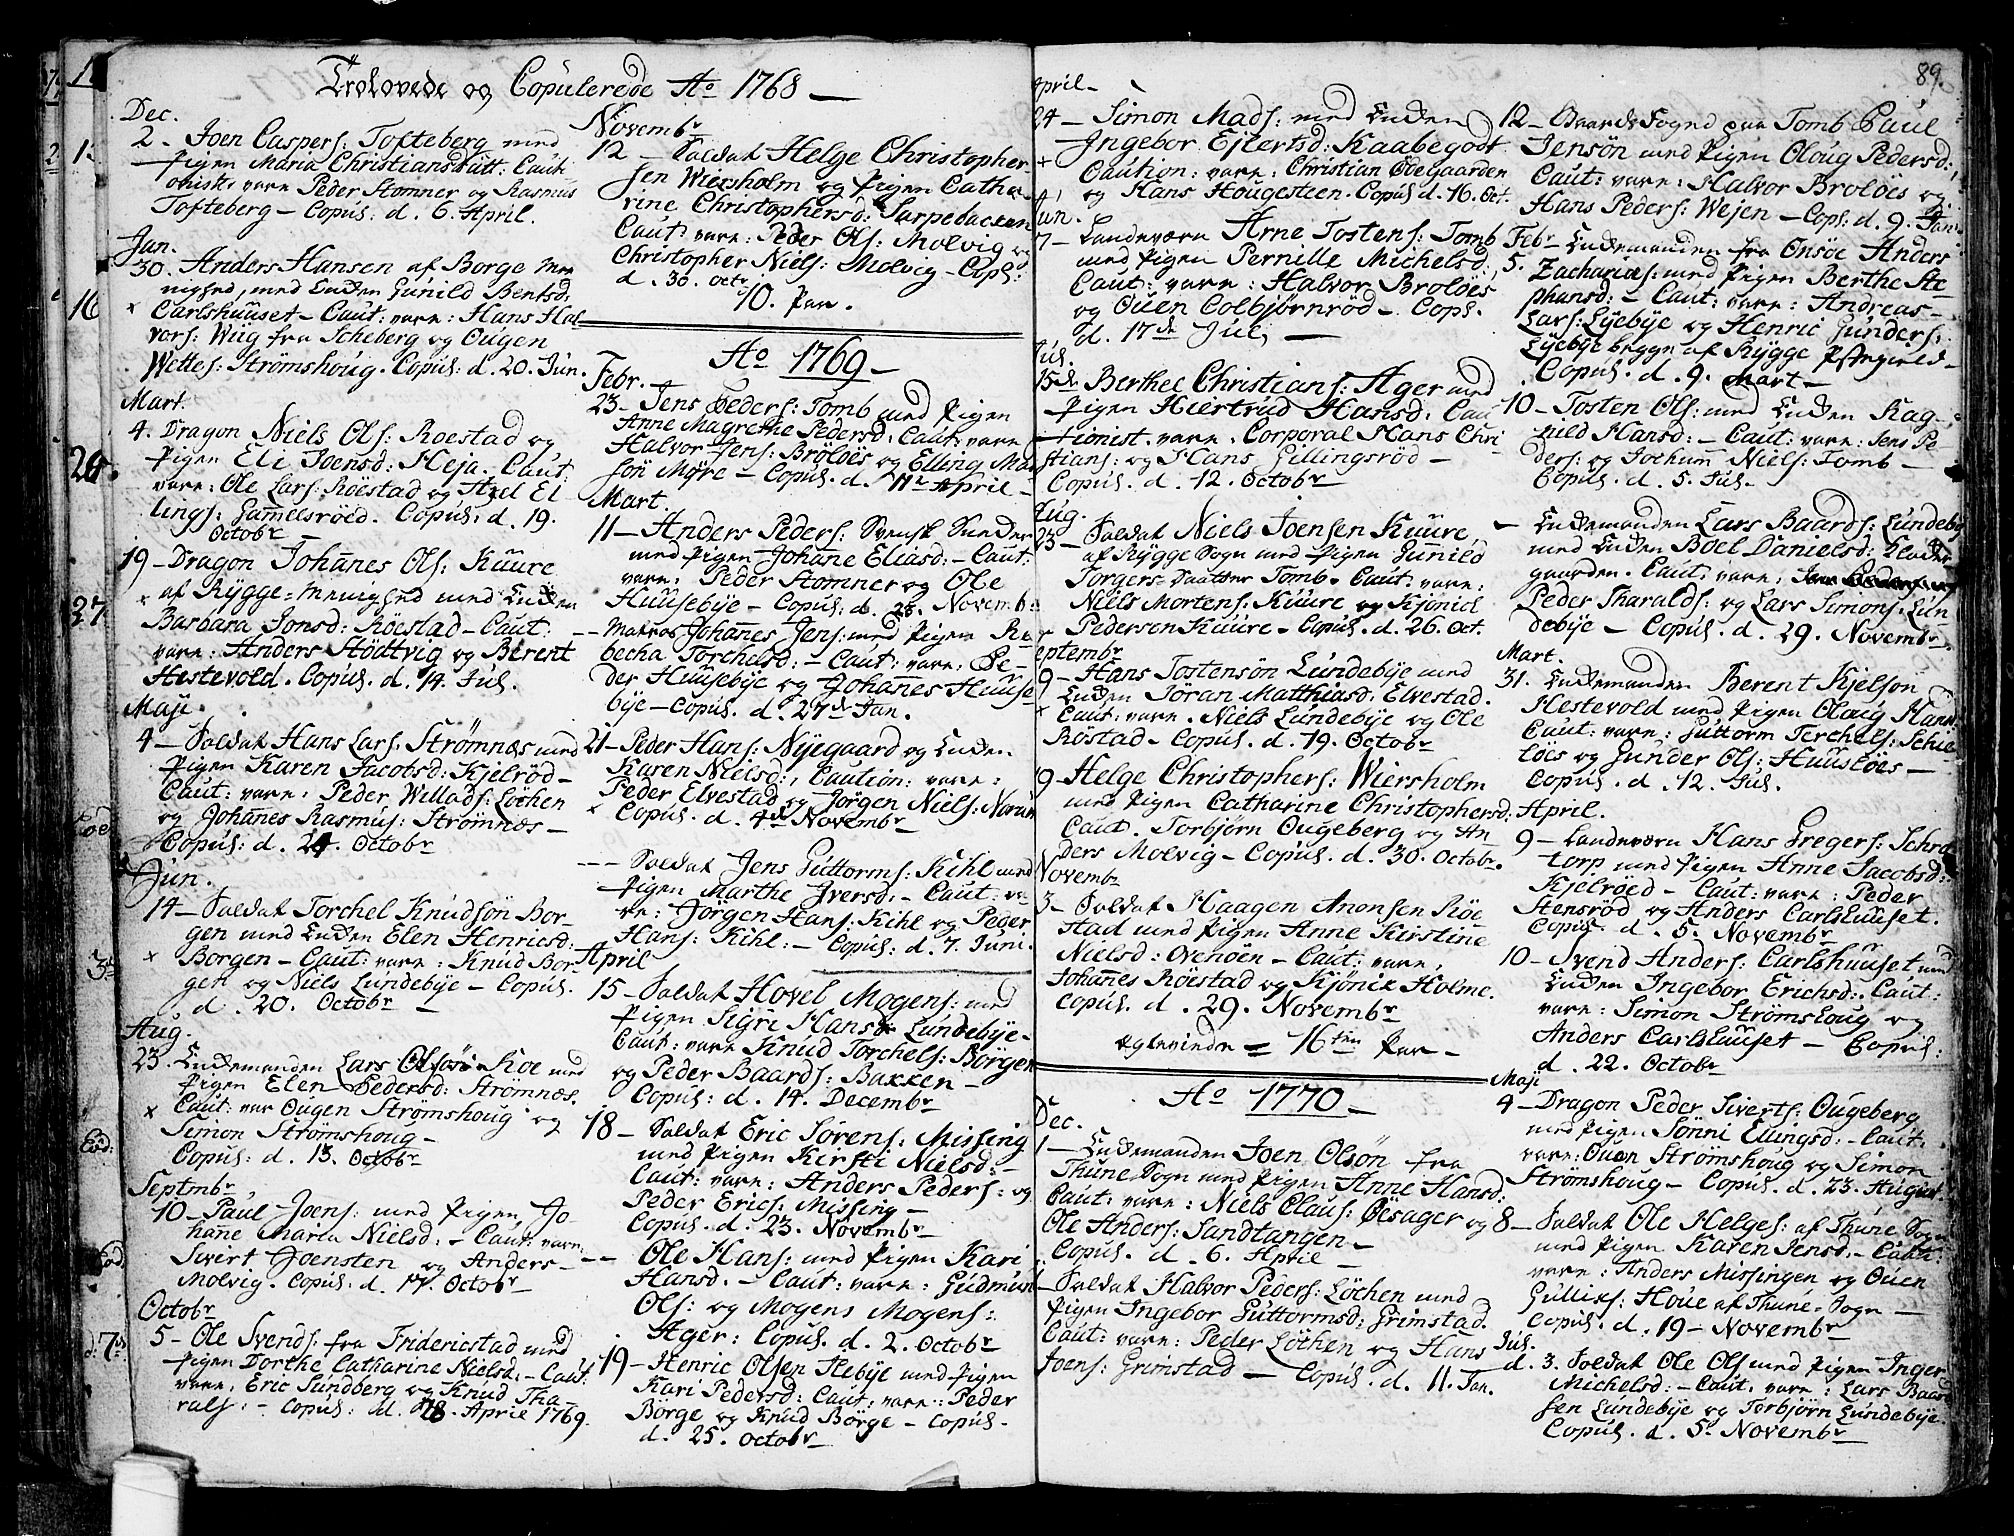 Trolovede og Copulerede Aº 1768 —
Dec.
2. Joen Caspers: Tofteberg med
Pigen Maria Christiansdatt: Caut
onister vare Peder Stomner og Rasmus
Tofteberg — Copul: d. 6. April.
Jan.
30. Anders Hansen af Borge Me
nighed, med Enken Gunild Bentsd:
x Carlshuuset — Caut: vare: Hans Hal
vors: Wiig fra Scheberg og Ougen
Wettes: Strømshoug. Copul: d. 20. Jun.
Mart.
4. Dragon Niels Ols: Roestad og
Pigen Eli Joensd: Heja. Caut:
vare: Ole Lars: Röestad og Axel El
lings: Gammelsröed. Copul: d. 19.
Octobr —
19 — Dragon Johannes Ols: Kuure
x af Rygge-Menighed med Enken
Barbara Jonsd: Röestad — Caut:
vare: Anders Hödtvig og Berent
Hestevold. Copul. d. 14. Jul.
Maji.
4 — Soldat Hans Lars: Strømnæs med
Pigen Karen Jacobsd: Kjelröd —
Caut: vare: Peder Wellads: Löchen
og Johannes Rasmus: Strømnæs —
Copul: d. 24. Octobr
Jun.
14 — Soldat Torchel Knudsön Bor-
gen med Enken Elen Henricsd:
x Borgen — Caut: vare: Knud Bor-
gen og Niels Lundebÿe — Copul.
d. 20. Octobr —
Aug.
23. Enkemanden Lars Olsön Koe med
Pigen Elen Pedersd: Strömnæs.
x Caut: var Ougen Strömshoug og
Simon Strömshoug —
Copul: d. 13. Octobr
Septmbr
10 — Paul Joens: med Pigen Jo-
hanne Maria Nielsd: — Caut: vare:
Sivert Joensten og Anders
Molvig. Copul: d. 17. Octobr
Octobr
5 — Ole Svends: fra Fridericstad med
Pigen Dorthe Catharine Nielsd: — Caut:
vare: Eric Sundberg og Knud Tha-
rals: — Copul: d. 28. April 1769.
Novembr
12 — Soldat Helge Christopher-
sen Wiersholm og Pigen Catha-
rine Christophersd: Sarpebacken
Caut: vare: Peder Ols: Molvig og
Christopher Niels: Molvig — Copl:
d. 30. Octr
10. Par.
Aº 1769 —
Febr.
23 — Jens Peders: Tomb med Pigen
Anne Magrethe Pedersd: Caut: vare
Halvor Jens: Brolöes og Elling Mar
sön Myre — Copul. d. 11te April —
Mart.
11 — Anders Peders: Svensk Sunder
med Pigen Johane Eliasd: — Caut:
vare: Peder Stomner og Ole
Huusebÿe — Copul: d. 28. Novemb:
-- Matros Johannes Jens: med Pigen Re
becha Torchelsd: — Caut: vare: Pe-
der Huusebÿe og Johannes Huuse
bÿe — Copul. d. 27de Jan.
21 — Peder Hans: Nÿegaard og Enken
Karen Nielsd: Caution: vare:
Peder Elvestad og Jörgen Niels: Narum
x Copul. d. 4de Novembr
--- Soldat Jens Guttorms: Kihl med
Pigen Marthe Iversd: — Caut: va-
re: Jörgen Hans: Kihl og Peder
Hans: Kihl: — Copul: d. 7. Juni.
April
15 — Soldat Hovel Mogens: med
Pigen Sigri Hansd: Lundebÿe —
Caut: vare Knud Torchels: Borgen
og Peder Baards: Bakken —
Copul: d. 14. Decembr
18 — Soldat Eric Sörens: Missing
med Pigen Kirsti Nielsd: —
Caut: vare: Anders Peders: og
Peder Erics: Missing —
Copul. d. 23. Novembr
-- Ole Hans: med Pigen Kari
Hansd. — Caut: vare: Gudmun
Ols: og Mogens Mogens:
Ager: Copul. d. 2. Octobr
19 — Henric Olsen Hebÿe med Pigen
Kari Pedersd: Caut: vare: Peder
Börge og Knud Börge — Copul.
d. 25. Octobr
April —
24 — Simon Mads: med Enken
x Ingebor Ejlertsd: Kaabegodt
Caution: vare: Christian Ödegaarden
og Hans Hougesteen. Copul d. 16. Oct.
Jun.
7 — Landeværn Arne Tostens: Tomb
med Pigen Pernille Michelsd:
Caut: vare: Halvor Brolöes
og Ouen Colbjørnröd — Cops.
d. 17de Jul. —
Jul.
15de Berthel Christians: Ager med
Pigen Hiertrud Hansd: Cau
tionist. vare. Corporal Hans Chri
stians: og Hans Gillingsröd —
Copul: d. 12. Octobr
Aug.
23 — Soldat Niels Joensen Kuure,
af Rygge Sogn med Pigen Gunild
Torgers Daatter Tomb. Caut: vare:
Niels Mortens: Kuure og Kjönich
Pedersen Kuure — Copul. d. 26. Oct.
Septembr
9 — Hans Tostensön Lundebÿe med
x Enken Jöran Matthiasd: Elvestad.
Caut: vare. Niels Lundebÿe og Ole
Röstad — Copul. d. 19. Octobr
19 — Helge Christophers: Wiersholm
med Pigen Catharine Christophersd:
Caut. Torbjörn Ougeberg og An
ders Molvig — Copul. d. 30. Octobr.
Novembr
3 — Soldat Haagen Anonsen Röe
stad med Pigen Anne Kirstine
Nielsd: Ovenöen — Caut: vare:
Johannes Röestad og Kjönik Holme.
Copul. d. 29. Novembr
Egteviede = 16ten Par —
Aº 1770 —
Dec.
1 — Enkemanden Joen Olsön fra
Thune Sogn med Pigen Anne Hansd:
Caut: vare: Niels Claus: Öÿsager og
Ole Anders: Sandtangen —
Copul. d. 6. April —
Soldat Halvor Peders: Löchen med
Pigen Ingebor Guttormsd: Grimstad.
Caut: vare: Peder Löchen og Hans
Joens: Grimstad — Copul. d. 11. Jan.
89.
12 — Baards Sogned paa Tomb Paul
Jensön med Pigen Oloug Pedersd:
Caut: vare: Halvor Brolöes og
Hans Peders: Wejen — Cops. d. 9. Jan.
Febr
5. Enkemanden fra Onsöe Anders
Zacharias: med Pigen Berthe Ste
phansd: — Caut: vare: Andreas
Lars: Lÿebÿe og Henric Gunders:
Lÿebÿe begge af Rÿgge Pstegield —
Copul. d. 9. Mart —
10 — Tosten Ols: med Enken Rag-
nild Hansd: — Caut: vare: Jens Pe
ders: og Jochum Niels: Tomb —
Copul. d. 5. Jul.
— Enkemanden Lars Baards: Lundebÿe
med Enken Boel Danielsd: Kloster
gaarden. Caut: vare:
Peder Tharalds: og Lars Simons: Lun
debÿe — Copul. d. 29. Novembr
Mart.
31. Enkemanden Berent Kjelson
Hestevold med Pigen Olaug Hans
Caut: vare: Guttorm Terchels: Schie
löes og Gunder Ols: Huuslöes —
Copul. d. 12. Jul.
April.
9 — Landeværn Hans Gregers: Schra
torp med Pigen Anne Jacobsd:
Kjelröed — Caut: vare: Peder
Stensröd og Anders Carlshuuset.
Copul. d. 5. Novembr
10 — Svend Anders: Carlshuuset med
Enken Ingebor Erichsd: Caut:
vare: Simon Strömshoug og
Anders Carlshuuset — Copul:
d. 22. Octobr
Maji
4 — Dragon Peder Siverts: Ougeberg
med Pigen Sönni Ellingsd: — Caut.
vare: Ouen Strömshoug og Simon
Strömshoug — Copul. d. 23. August
8 — Soldat Ole Helges: af Thune Sogn
med Pigen Karen Jensd: — Caut:
vare: Anders Missingen og Ouen
Gulliks: Houe af Thune-Sogn —
Copul. d. 19 — Novembr
Jul.
d. 3. Soldat Ole Ols med Pigen Inger
Michelsd: — Caut. vare: Lars Baar
sen Lundebÿe og Torbjörn Lundebÿe
Copul. d. 5te Novembr